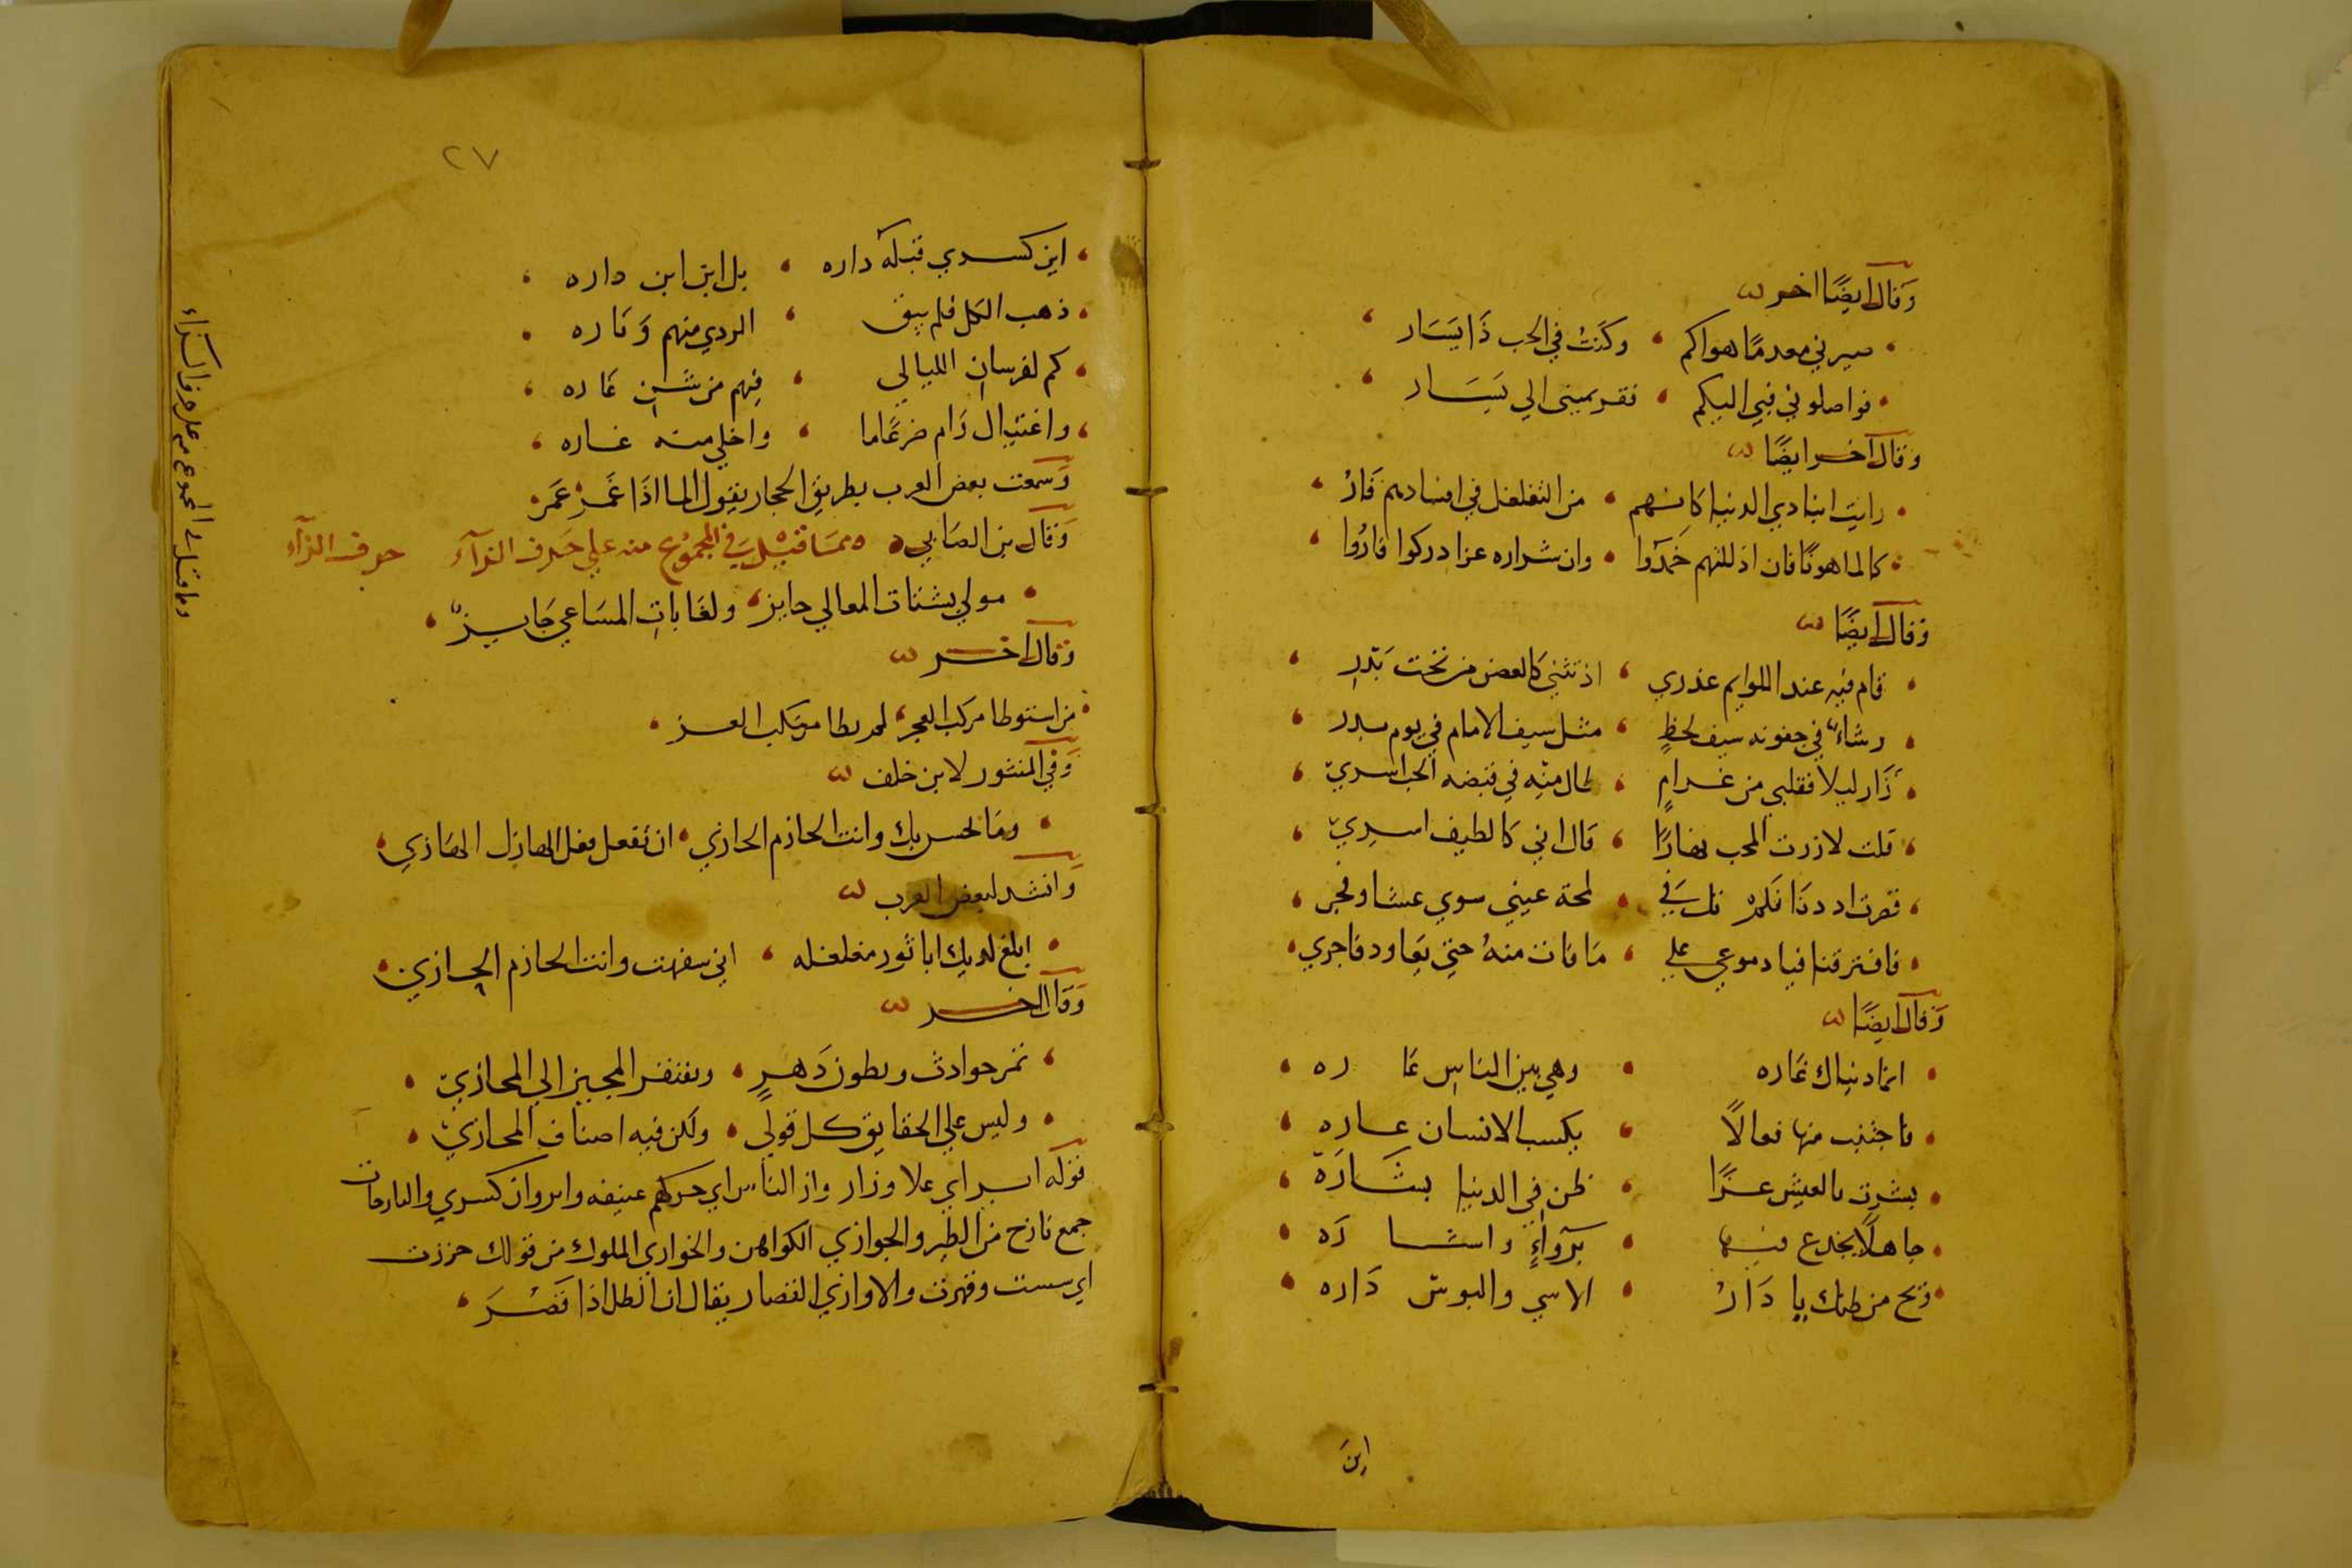 وَقال ايضًا اخر
صيرني معدمًا هواكم وكنت في الحب ذَا يَسَار
فواصلوني فيي اليكم فقر يميني الي يَسَار
وقال آخر ايضًا
رايت ابنا ذي الدنيا كانهم من التغلغل في افسادهم فَارُ
كالما هونًا فان اذللتهم خَمدَوا وان شراره عز ادركوا فارُوا
وَقال ايضًا
قام فيه عند اللوايم عذري اذ تثني كالغصن من تحت بَدر
رشاءٌ في جفونه سيف لحظٍ مثل سيف الامام في يوم بدر
زَار ليلا فقلبي من غرامٍ طال منه في قبضه الحب اسري
قلت لا زرت المحب نهارًا قال اني كالطيف اسري
فافترقنا فيا دموعي علي مَا فات منهُ حتي يَعاود فاجري
وَقال ايضًا
انما دنياك غَاره وهي بين الناس عَا ره
فاجتنب منها فعالاً يكسب الانسان عاره
بشرت بالعيش غرًّا ظن في الدنيا بشَارَة
جاهلًا يخدع فيها برَواءٍ واشا رَه
ويح من ظنك يا دَارُ الاسي والبوس دَاره
اين
٢٧
اين كسري قبله داره بل اين ابن داره
ذهب الكل فلم يبق الردي منهم وَنَاره
كم لفرسان الليالي فيهم من شن غَاره
واغتيال رَام ضرغَاما واخلي منه غاره
وَسمعت بعض العرب بطريق الحجاز يقول الما اذَا غَمَرْ عَمَرْ
وَقال بن الصَابي ممَا قيل في المجمُوع منه علي حَرف الزآء حرف الزآء
مولي بشتات المعالي حايز ولغَايات المسَاعي جَايزٌ
وَقال اخر
من استوطا مركب العجز لم يطا مركب العز
وَفي المنثور لابن خلف
ومَا يحسن بك وانت الحازم الحازي ان تفعل فعل الهازل الهَازي
وانشد لبعض العرب
ابلغ لديك ابا ثور مغلغله اني سفهت وانت الحازم الحازي
وَقال اخر
تمر حوادث ويطون دَهرٍ ويفتقر المجيز الي المجازي
وليس علي الحقايق كل قولي ولكن فيه اصناف المجازي
قوله ابر اي علا وزار واز الناس اي حركهم عنيفه وابروان كسري والبازمات
جمع نازح من الطير والجوازي الكواهن والخوازي الملوك من قولك حززت
اي سست وقهرت والاوازي القصار يقال ان الظل اذا قَصُرَ
وما قيل في المجموع منه علي حرف الزاء